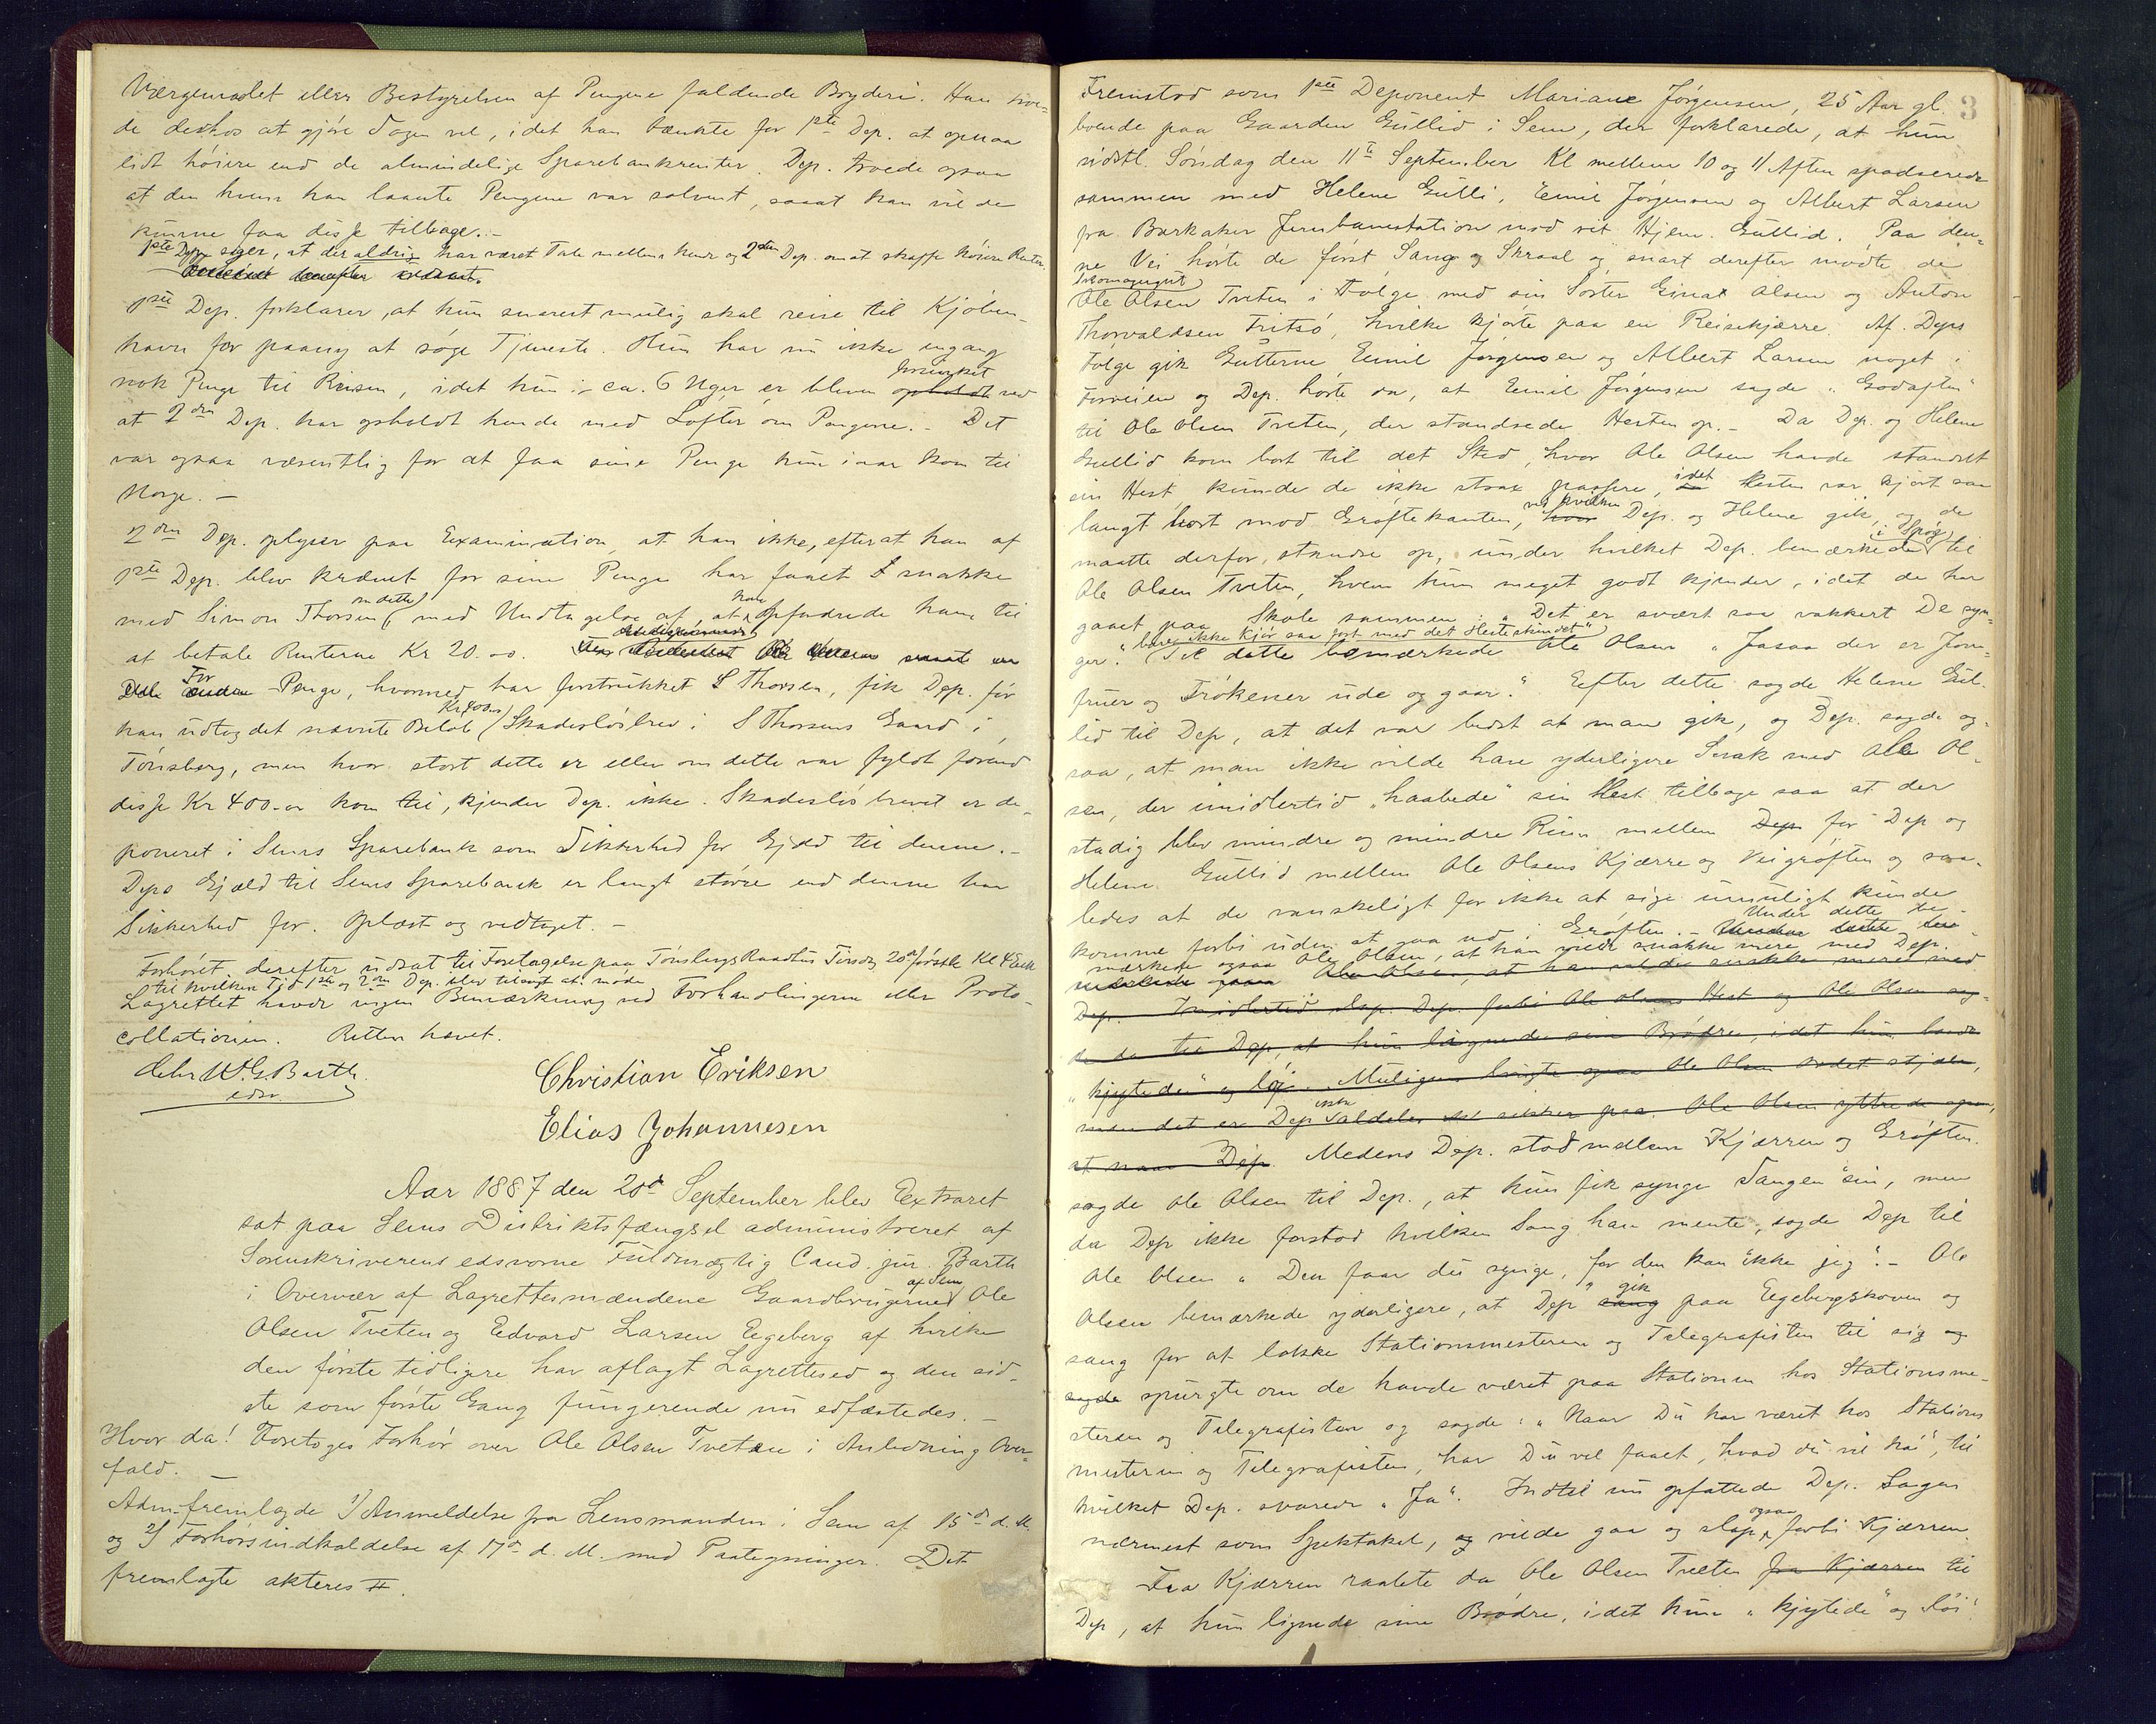 Værgemaalet eller Bestyrelsen af Pengene faldende Bryderi. Han troe-
de deshos at gjøre Sagen vel, idet han tænkte for 1ste Dep. at opnaa
lidt høiere end de almindelige Sparebankrenter. Dep. troede ogsaa
at den hvem han laante Pengene var solvent, saaat han vilde
kunne faa disse tilbage.-
1ste Dep. siger, at der aldrig har været Tale mellem hende og 2den Dep. om at skaffe høiere Renter.
1ste Dep. forklarer, at hun snarest mulig skal reise til Kjøben-
havn for paany at søge Tjeneste. Hun har nu ikke engang
nok Penge til Reisen, idet hun i ca. 6 Uger er bleven opholdt ved
at 2den Dep. har opholdt hende med Løfter om Pengene.- Det
var ogsaa væsentlig for at faa sine Penge hun iaar kom til
Norge.-
2den Dep. oplyser paa Examination, at han ikke, efterat han af
1ste Dep. blev krævet for sine Penge har faaet snakke
med Simon Thorsen (om dette) med Undtagelse af, at han opfordrede ham til
at betale Renterne Kr 20.00.
For Penge, hvormed har forstrukket S Thorsen, fik Dep. før
han udtog det nævnte Beløb Kr 400 (Skadesløsbrev i S Thorsens Gaard i
Tønsberg, men hvor stort dette er eller om dette var fyldt førend
disse Kr 400.00 kom til, kjender Dep. ikke. Skadesløsbrevet er de-
poneret i Sems Sparebank som Sikkerhed for Gjæld til denne.-
Deps Gjæld til Sems Sparebank er langt større end denne har
Sikkerhed for. Oplæst og vedtaget.-
Forhøret derefter udsat til Foretagelse paa Tønsbergs Raadhus Tirsdag 20de førstk. Kl 4 Em
til hvilken Tid 1ste og 2den Dep. blev tilsagt at møde
Lagrettet havde ingen Bemærkning ved Forhandlingerne eller Proto-
collationen. Retten hævet.
W. G. Barth
edsv.
Christian Eriksen
Elias Johannesen
Aar 1887 den 20de September blev Extraret
sat paa Sems Distriktsfængsel administreret af
Sorenskriverens edsvorne Fuldmægtig Cand. jur. Barth
i Overvær af Lagrettesmændene Gaardbrugerne af Sem Ole
Olsen Tveten og Edvard Larsen Eegeberg af hvilke
den første tidligere har aflagt Lagrettesed og den sid-
ste som første Gang fungerende nu edfæstedes.-
Hvor da! Foretoges Forhør over Ole Olsen Tveten i Anledning Over-
fald.-
Adm. fremlagde 1/ Anmeldelse fra Lensmanden i Sem af 15de d. M.
og 2/ Forhørsindkaldelse af 17de d. M. med Paategninger. Det
fremlagte akteres #.
3
Fremstod som 1ste Deponent Mariane Jørgensen, 25 Aar gl.
boende paa Gaarden Gullid i Sem, der forklarede, at hun
sidstl. Søndag den 11te September Kl mellem 10 og 11 Aften spadserede
sammen med Helene Gulli, Emil Jørgensen og Albert Larsen
fra Barkaker Jernbanestation mod sit Hjem Gullid. Paa den-
ne Vei hørte de først Sang og Skraal og snart derefter mødte de
Ole Olsen Tveten i Følge med sin Søster Gina Olsen og Anton
Thorvaldsen Fritsø, hvilke kjørte paa en Reisekjærre. Af Deps
Følge gik Gutterne Emil Jørgensen og Albert Larsen noget i
Forveien og Dep. hørte da, at Emil Jørgensen sagde "Godaften"
til Ole Olsen Tveten, der standsede Hesten op.- Da Dep. og Helene
Gullid kom bort til det Sted, hvor Ole Olsen havde standset
sin Hest kunde de ikke strax passere, idet Hesten var kjørt saa
langt bort mod Grøftekanten, ved hvilken Dep. og Helene gik, og de
maatte derfor standse op, under hvilket Dep. bemærkede i Spøg til
Ole Olsen Tveten, hvem hun meget godt kjender, idet de har
gaaet paa Skole sammen: "Det er svært saa vakkert De syn-
ger." bare ikke kjør saa fort med det Hesteskindet"
Til dette bemærkede Ole Olsen "Jasaa der er Jom-
fruer og Frøkener ude og gaar." Eefter dette sagde Helene Gul-
lid til Dep, at det var bedst at man gik, og Dep. sagde og-
saa, at man ikke vilde have yderligere Snak med Ole Ol-
sen, der imidlertid "haabede" sin Hest tilbage saa at der
stadig blev mindre og mindre Rum mellem Dep for Dep og
Helene Gullid mellem Ole Olsens Kjærre og Veigrøften og saa-
ledes at de vanskeligt for ikke at sige umuligt kunde
komme forbi uden at gaa ned i Grøften.- Under dette be-
mærkede ogsaa Ole Olsen, at han vilde snakke mere med Dep.
Ole Olsen, at han vilde snakke mere med
Dep. Imidlertid slap Dep. forbi Ole Olsens Hest og Ole Olsen sag-
de da til Dep, at hun lignede sine Brødre, idet hun baade
"kjytede" og løi. Muligens brugte ogsaa Ole Olsen Ordet stjæle,
men det er Dep ikke aldeles sikker paa. Ole Olsen yttrede ogsaa,
at naar Dep. Medens Dep. stod mellem Kjærren og Grøften
sagde Ole Olsen til Dep., at hun fik synge Sangen sin, men
da Dep ikke forstod hvilken Sang han mente, sagde Dep til
Ole Olsen "Den faar du synge, for den kan ikke jeg".- Ole
Olsen bemærkede yderligere, at Dep "gik paa Eegebergskoven og
sang for at lokke Stationsmesteren og Telegrafisten til sig og
sagde spurgte om de havde været paa Stationen hos Stationsme-
steren og Telegrafisten og sagde: "Naar Du har været hos Stations
mesteren og Telegrafisten, har Du vel faaet, hvad du vil ha", til
hvilket Dep. svarede "Ja". Indtil nu opfattede Dep. Sagen
nærmest som Spektakel, og vilde gaa og slap ogsaa forbi Kjærren.
Fra Kjærren raabte da Ole Olsen Tveten fra Kjærren til
Dep, at hun lignede sine Brødre, idet hun "kjytede" og løi".